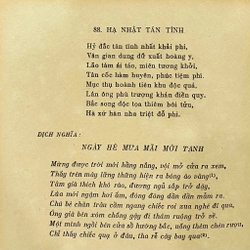 88. HẠ NHẬT TÂN TÌNH
Hỷ đắc tân tình nhất khải phi,
Vãn gian dung dã xuất hoàng y,
Lão tàm ái táo, miên tương khởi,
Tân cốc hàm huyên, phúc tiệm phì.
Mục thụ hoành tiên khu độc quá,
Lân ông phù trượng khán điền quy.
Bắc song độc tọa thiêm bôi tửu,
Hà xứ hàn nha triệt đỗ phi.
DỊCH NGHĨA:
NGÀY HÈ MƯA MÃI MỚI TẠNH
Mừng được trời mới hửng nắng, vội mở cửa ra xem,
Thấy trên mây lững thững hiện ra bóng áo vàng(1).
Tằm già thích khô ráo, đương ngủ sắp trở dậy,
Lúa mới ngậm hơi ấm, đòng đòng dần dần mẫm ra.
Chú bé chăn trâu cầm ngang chiếc roi xua nghé đi qua,
Ông già bên xóm chống gậy đi thăm ruộng trở về.
Một mình ngồi bên cửa sổ hướng bắc, nâng thêm chén rượu,
Chỉ thấy chiếc quạ ở đâu, tha rễ cây bay qua(2).